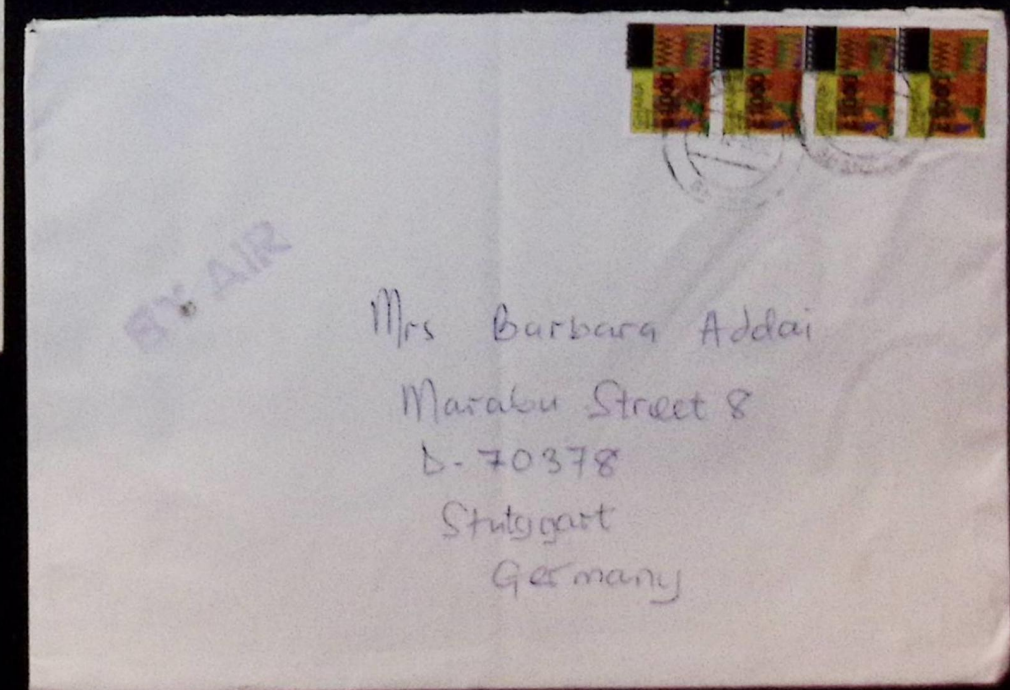 GHANA
BY AIR
Mrs Barbara Addai
Marabu Street 8
D-70378
Stutggart
Germany